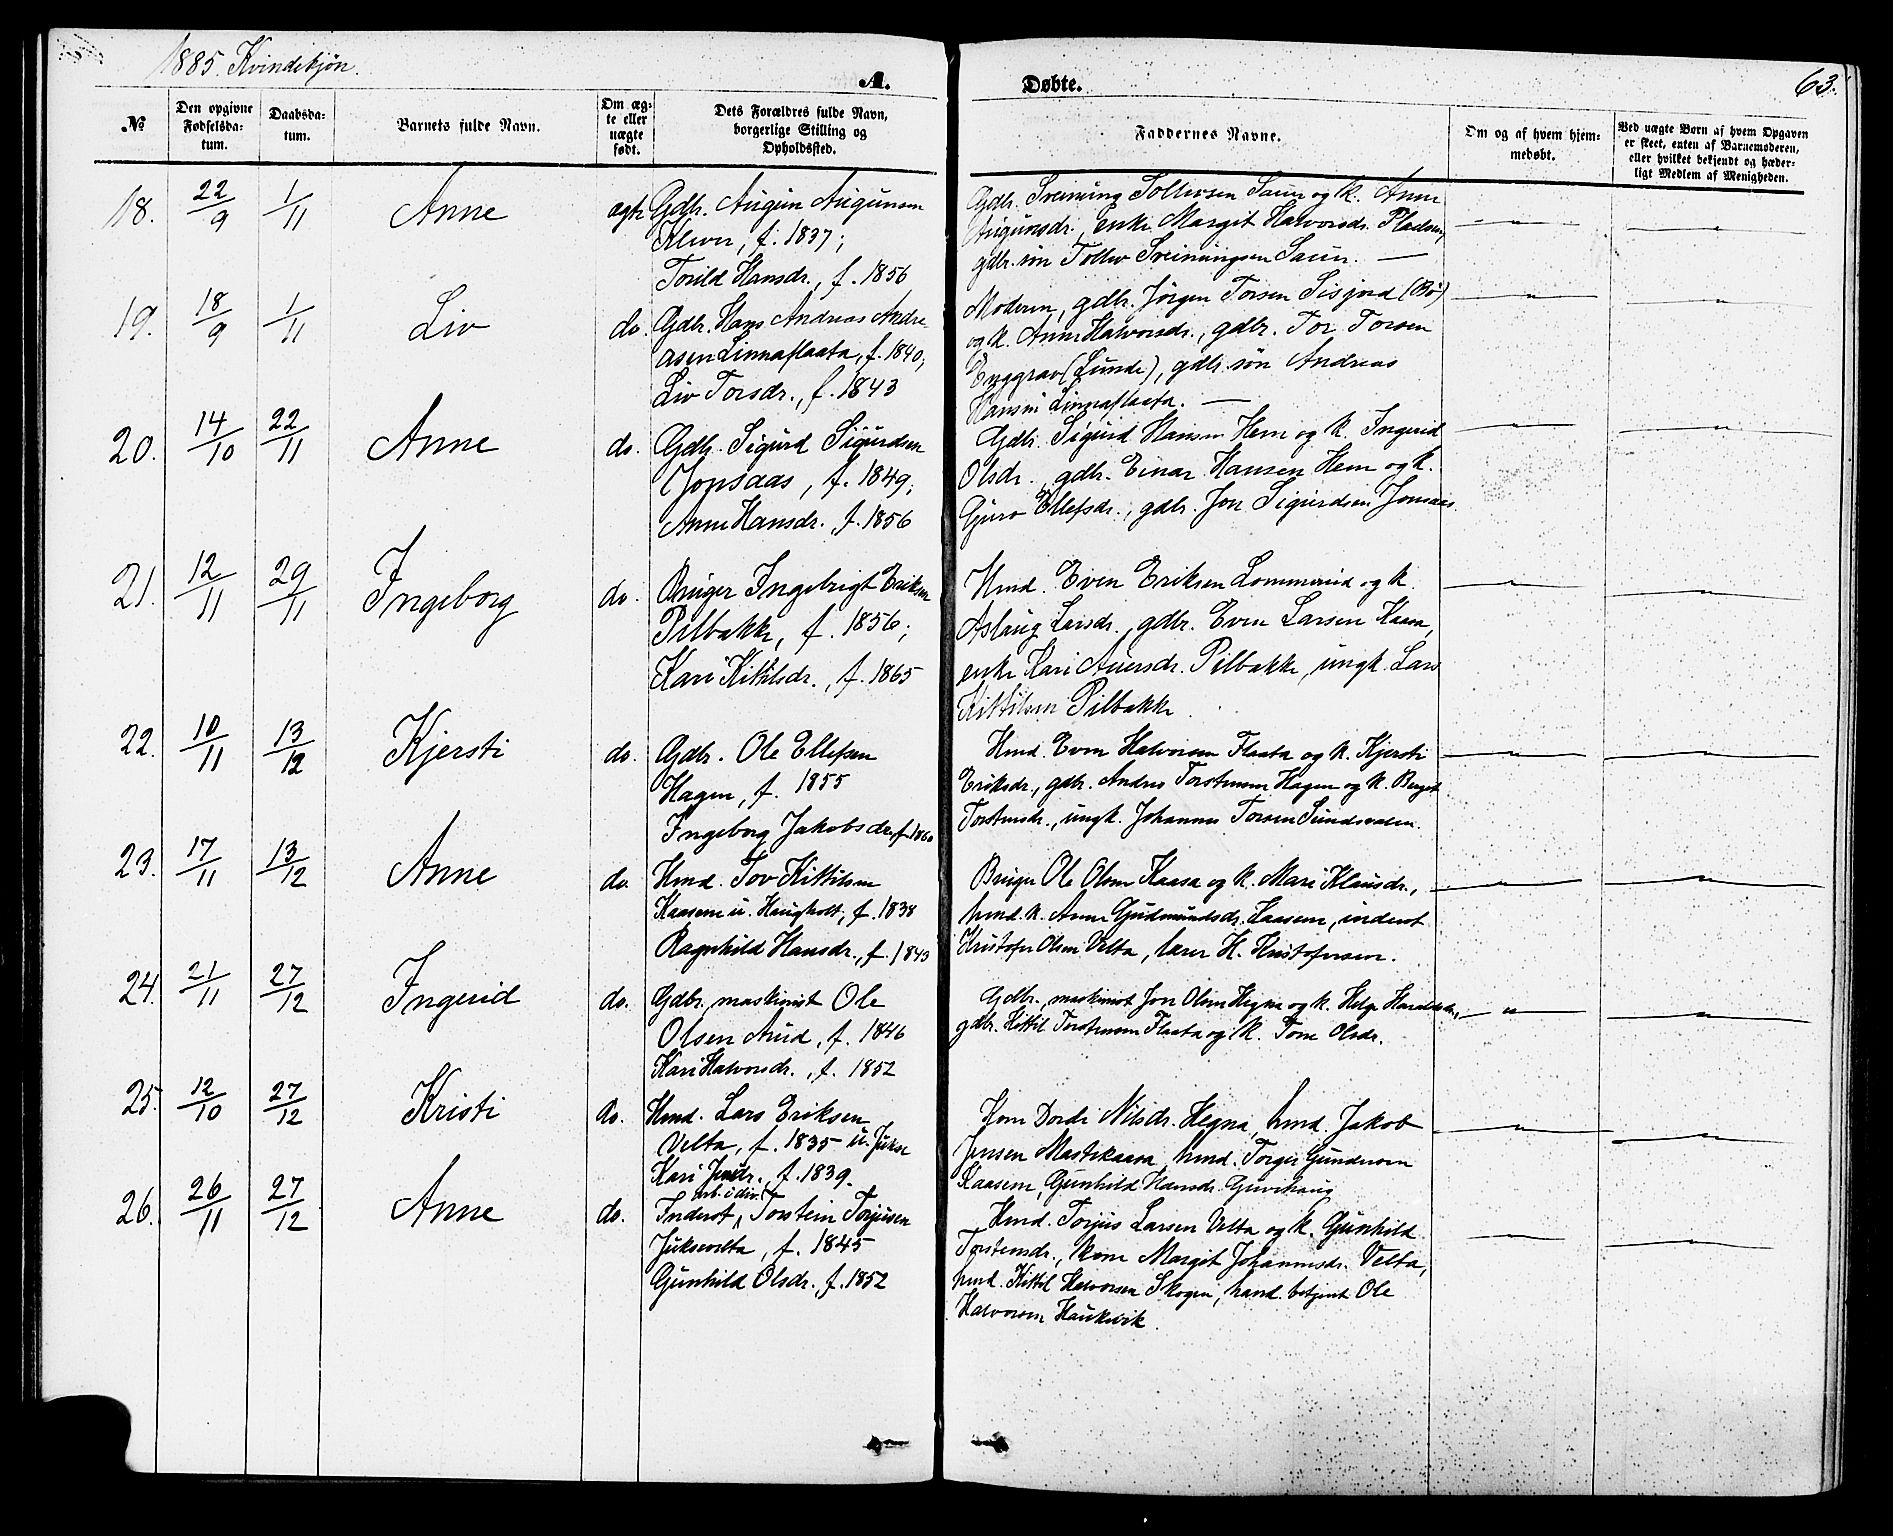 1885. Kvindekjøn.
A.
Døbte.
63.
№
Den opgivne
Fødselsda-
tum.
Daabsda-
tum.
Barnets fulde Navn.
Om æg-
te eller
uægte
født.
Dets Forældres fulde Navn,
borgerlige Stilling og
Opholdssted.
Faddernes Navne.
Om og af hvem hjem-
medøbt.
Ved uægte Børn af hvem Opgaven
er skeet, enten af Barnemoderen,
eller hvilket bekjendt og hæder-
ligt Medlem af Menigheden.
18. 22/9 1/11 Anne ægte Gdbr. Augun Augunsen
Klever, f. 1837;
Torild Hansdr., f. 1856
Gdbr. Sveinung Tollevsen Saur og k. Anne
Augunsdr., enke Margit Halvorsdr.
gdbr. søn Tollev Sveinungsen Saur. —
19. 18/9 1/11 Liv do. Gdbr. Hans Andreas Andre-
asen Linnaflaata, f. 1840;
Liv Torsdr., f. 1843
Moderen, gdbr. Jörgen Torsen Sisjord (Bö)
og k. Anne Halvorsdr., gdbr. Tor Torsen
Enggrav (Lunde), gdbr. søn Andreas
Hansen Linnaflaata. —
20. 14/10 22/11 Anne do. Gdbr. Sigurd Sigurdsen
Jonsaas, f. 1849;
Anne Hansdr., f. 1856
Gdbr. Sigurd Hansen Hem og k. Ingerid
Olsdr., gdbr. Einar Hansen Hem og k.
Guro Ellefsdr., gdbr. Jon Sigurdsen Jonsaas.
21. 12/11 29/11 Ingeborg do. Bruger Ingebrigt Eriksen
Pilbakke, f. 1856;
Kari Kittilsdr., f. 1865
Hmd. Even Eriksen Lommerud og k
Aslaug Larsdr., gdbr. Even Larsen Kaasa,
enke Kari Auensdr. Pilbakke, ungk. Lars
Kittilsen Pilbakke.
22. 10/11 13/12 Kjersti do. Gdbr. Ole Ellefsen
Hagen, f. 1855
Ingeborg Jakobsdr., f. 1860
Hmd. Even Halvorsen Flaata og k. Kjersti
Eriksdr., gdbr. Andres Torstensen Hagen og k. Berget
Torstensdr., ungk. Johannes Torsen Sundsvalen.
23. 17/11 13/12 Anne do. Hmd. Tov Kittilsen
Kaasene u. Haugholt, f. 1838
Ragnhild Hansdr., f. 1843
Bruger Ole Olsen Kaasa og k. Mari Klausdr.,
hmd. k. Anne Gudmundsdr. Kaasene, inderst
Kristofer Olsen Velta, lærer H. Kristofersen.
24. 21/11 27/12 Ingerid do. Gdbr., maskinist Ole
Olsen Aud, f. 1846
Kari Halvorsdr., f. 1852
Gdbr., maskinist Jon Olsen Hegna og k. Helge Haraldsdr.,
gdbr. Kittil Torstensen Flaata og k. Tone Olsdr.
25. 12/10 27/12 Kristi do. Hmd. Lars Eriksen
Velta, f. 1835 u. Jukse
Kari f. 1839.
Kone Dorde Nilsdr. Hegna, hmd. Jakob
Jensen Mastekaasa, hmd. Torger Gundersen
Kaasene, Gunhild Hansdr. Gurihaug
26. 26/11 27/12 Anne do. Inderst, arb. i div. Torstein Torjusen
Juksevelta, f. 1845
Gunhild Olsdr., f. 1852
Hmd. Torjus Larsen Velta og k. Gunhild
Torstensdr., kone Margit Johannesdr. Velta,
hmd. Kittil Halvorsen Skogen, hand. betjent Ole
Halvorsen Haukvik.